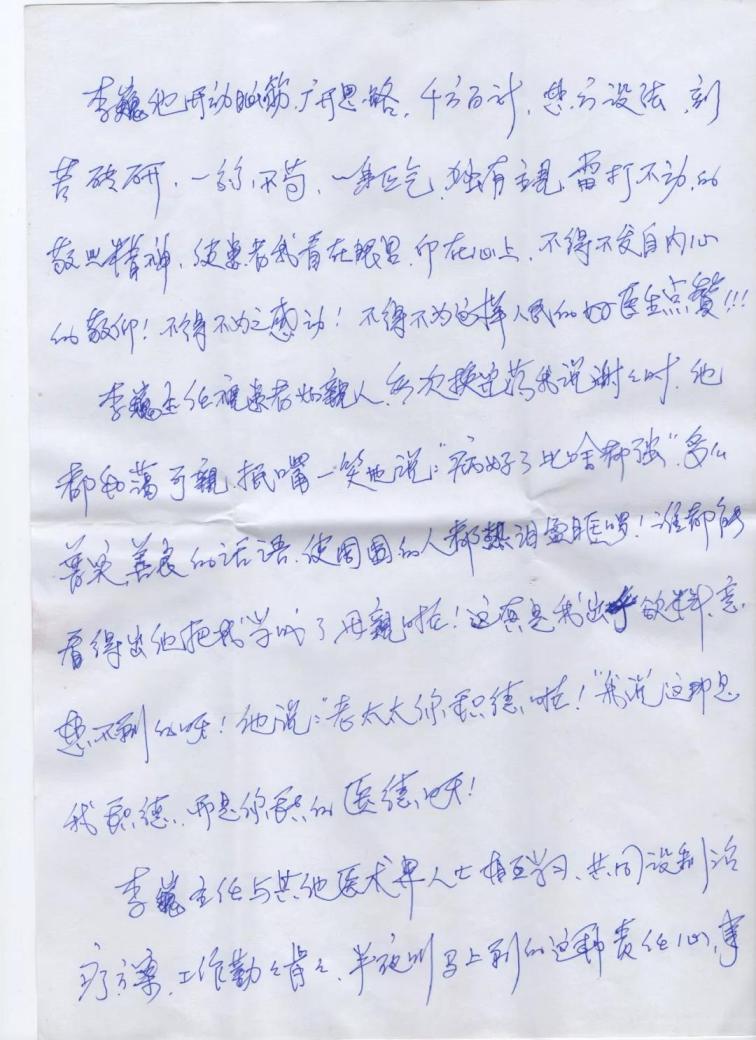 李巍他开动脑筋.广开思路.千方百计.想方设法.刻
苦砖研.一的不苟.一身正气.独有主見.雷打不动.的
敬业精神.使患者我看在眼里.印在心上.不得不发自内心
的敬仰!不得不为之感动!不得不为这样人民的好医生点贊!!!
李巍主任視患者如親人.每次換完药我说谢之时.他
都和蔼可親.抿嘴一笑地说:"病好了比啥都强".多么
普实.善良的话语.使周圍的人都熱泪盈眶呀!谁都能
看得出他把我当成了母親啦!这真是我出乎欲料.意.
想不到的呀!他说:"老太太你积德啦!"我说这那是
我积德.而是你积的医德呀!
李巍主任与其他医术界人士相互学习.共同设制治
疗方案.工作勤々肯々.半夜叫马上到的这种责任心.事